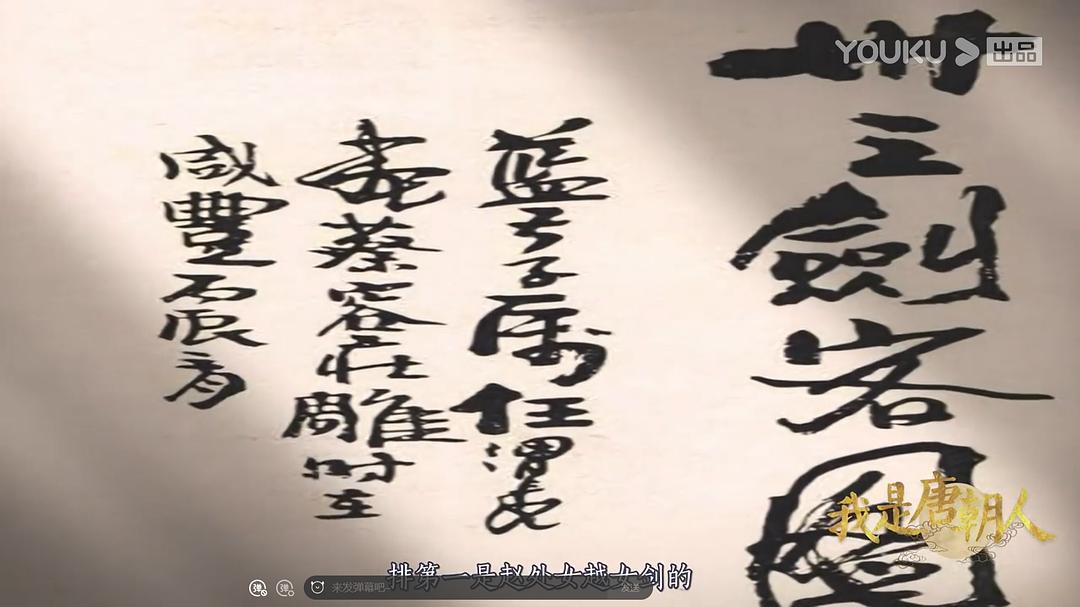 卅三劍客圖
藍子屬任渭長
畫蔡容莊雕時在
咸豐丙辰
YOUKU 出品
我是唐朝人
排第一是赵处女越女剑的
弹 弹 来发弹幕吧~ 发送